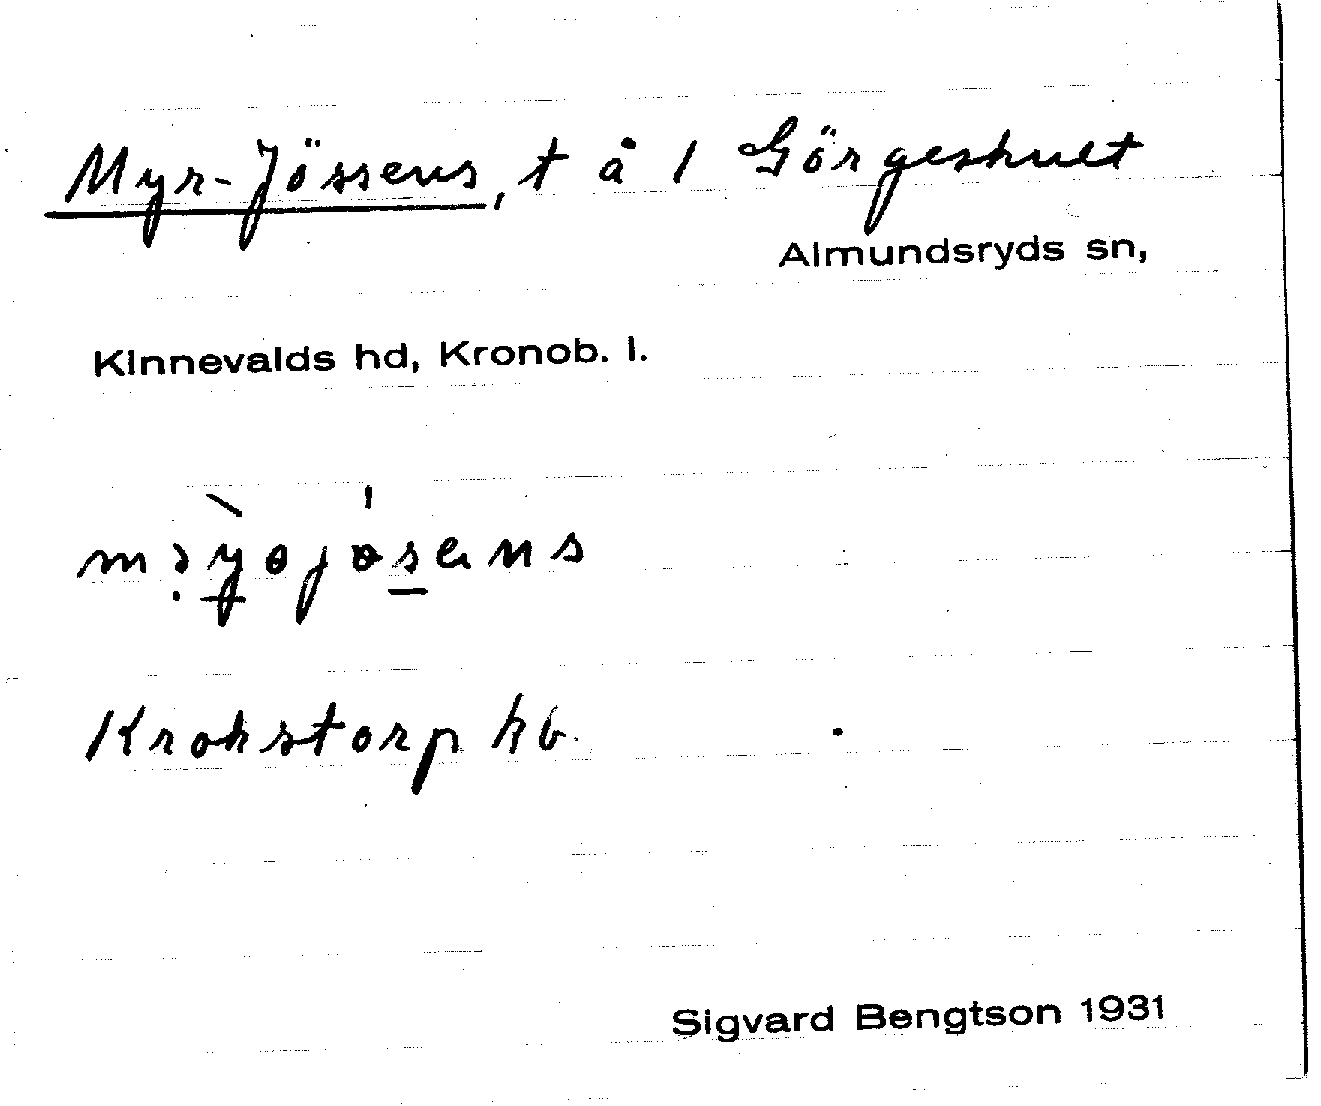 Myr-Jössens, t å 1 Görgeshult
Almundsryds sn,
Kinnevalds hd, Kronob. l.
Krokstorp hb.
Sigvard Bengtson 1931